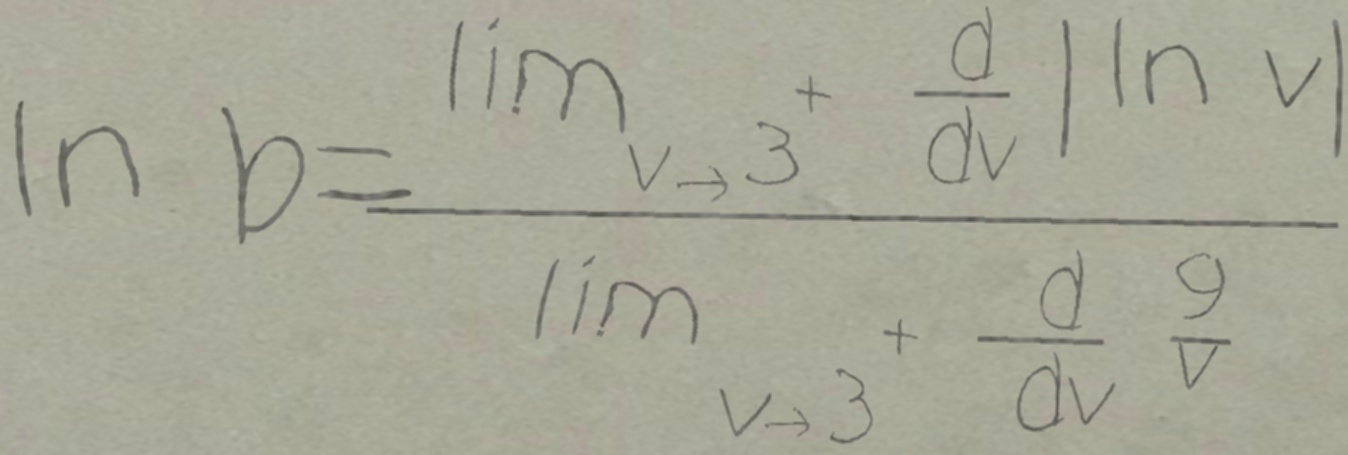 \ln b = \frac{\lim_{v \to 3^+} \frac{d}{dv} |\ln v|}{\lim_{v \to 3^+} \frac{d}{dv} \frac{9}{v}}